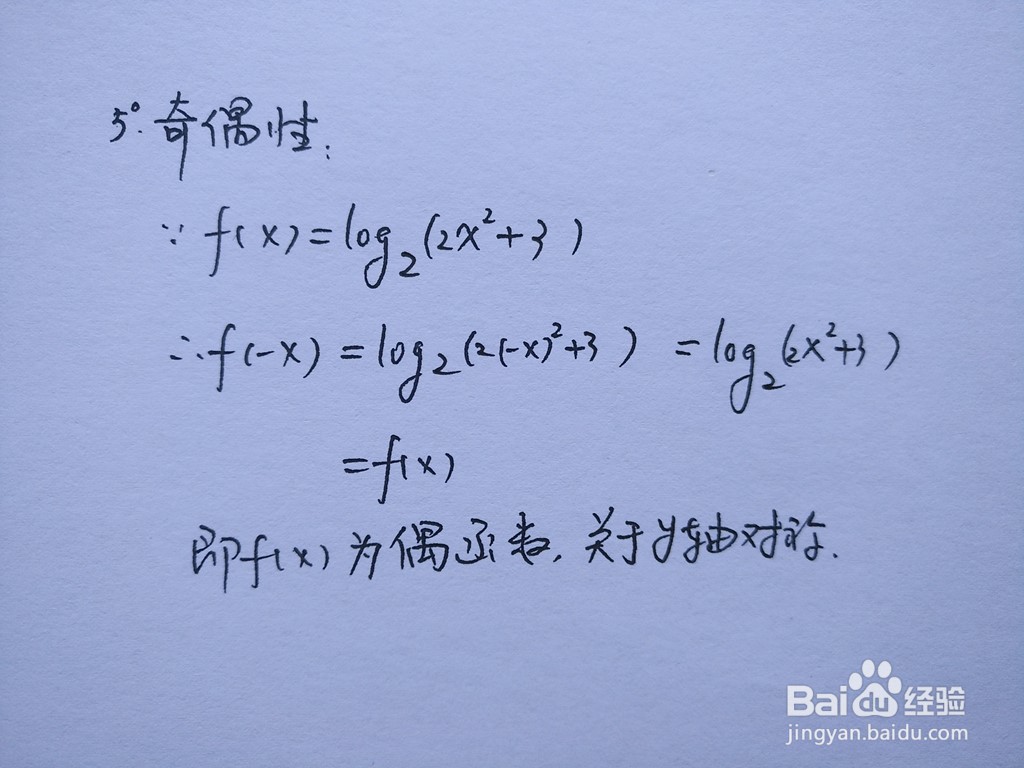 5°. 奇偶性:
∵ f(x)=log₂(2x²+3)
∴ f(-x) = log₂(2(-x)²+3) = log₂(2x²+3)
=f(x)
即f(x)为偶函数,关于y轴对称.
Bai du 经验
jingyan.baidu.com